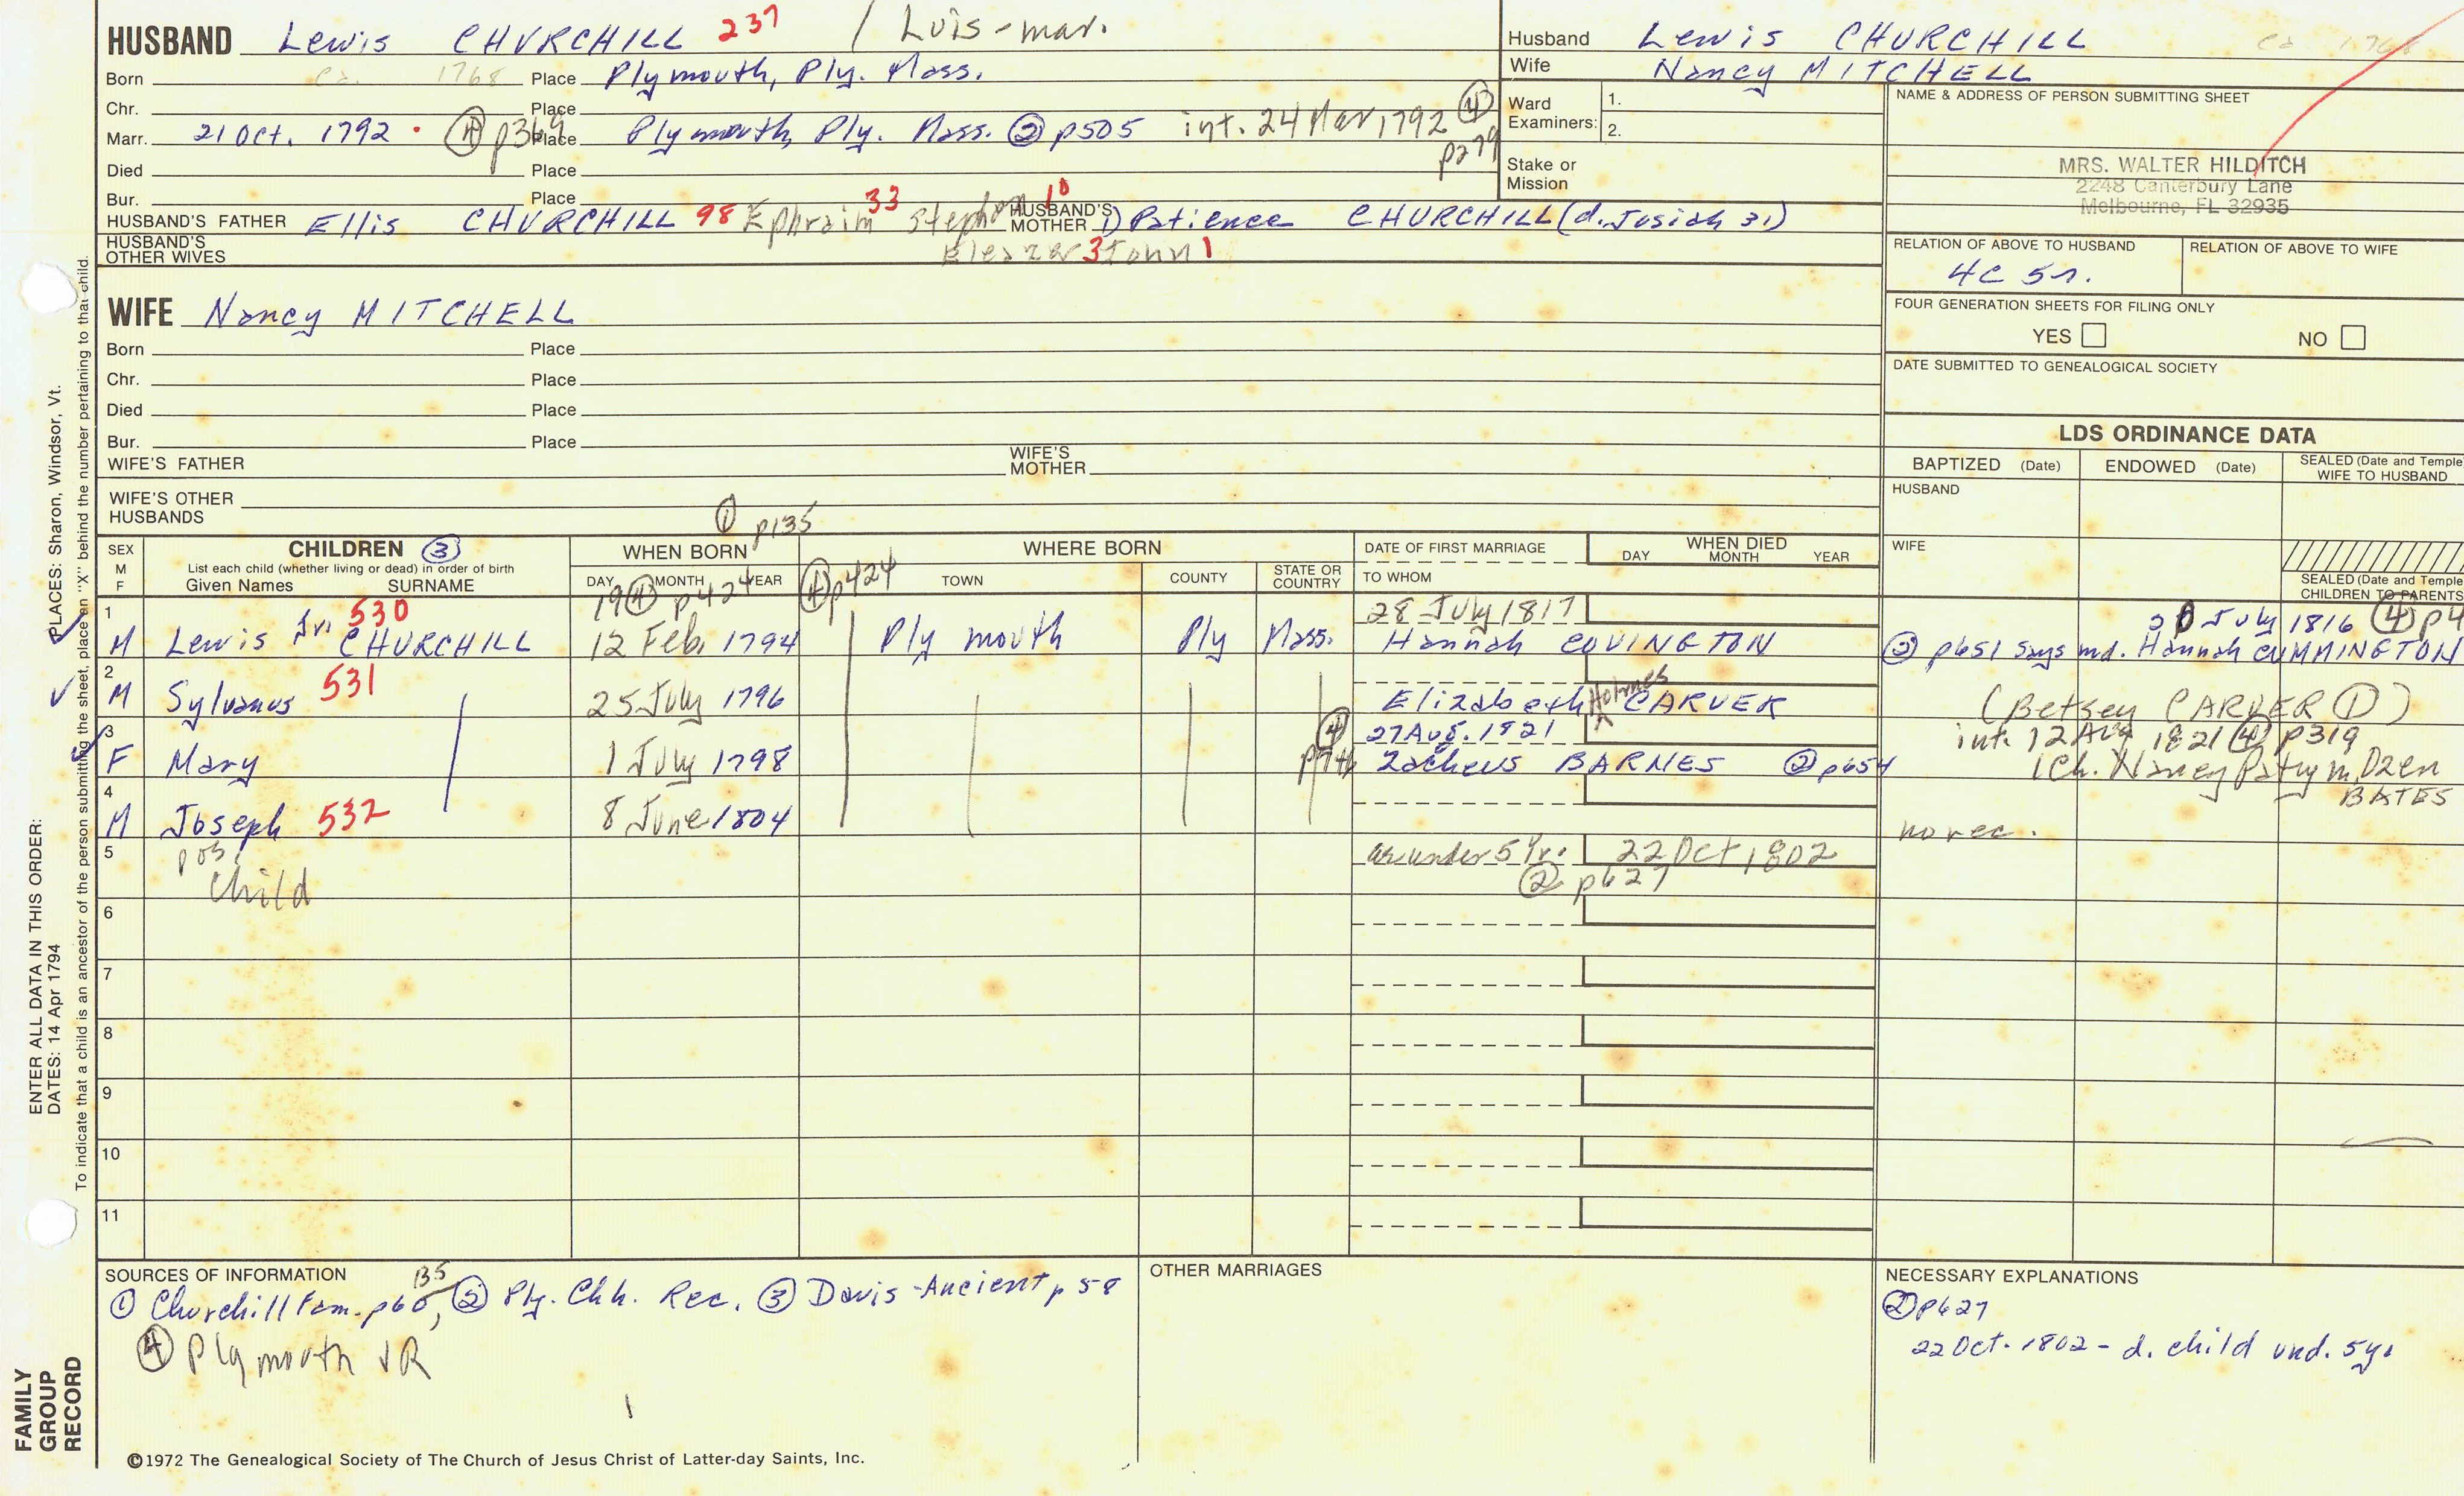 HUSBAND Lewis CHURCHILL 237 / Luis - mar.
Born ca. 1768 Place Plymouth, Ply. Mass.
Chr. Place
Marr. 21 Oct. 1792 · ④ p369 Place Plymouth, Ply. Mass. ② p505 int. 24 Mar 1792 ④ p279
Died Place
Bur. Place
HUSBAND'S FATHER Ellis CHURCHILL 98 Ephraim 33 Stephen 10 HUSBAND'S MOTHER 1) Patience CHURCHILL (d. Josiah 31)
HUSBAND'S OTHER WIVES Eleazer 3 John 1
WIFE Nancy MITCHELL
Born Place
Chr. Place
Died Place
Bur. Place
WIFE'S FATHER WIFE'S MOTHER
WIFE'S OTHER HUSBANDS
Husband Lewis CHURCHILL ca 1768
Wife Nancy MITCHELL
Ward Examiners: 1.
2.
Stake or Mission
NAME & ADDRESS OF PERSON SUBMITTING SHEET
MRS. WALTER HILDITCH
2248 Canterbury Lane
Melbourne, FL 32935
RELATION OF ABOVE TO HUSBAND RELATION OF ABOVE TO WIFE
4C 5r.
FOUR GENERATION SHEETS FOR FILING ONLY
YES NO
DATE SUBMITTED TO GENEALOGICAL SOCIETY
LDS ORDINANCE DATA
BAPTIZED (Date) ENDOWED (Date) SEALED (Date and Temple WIFE TO HUSBAND
HUSBAND
WIFE
SEALED (Date and Temple CHILDREN TO PARENTS
① p135
SEX M F CHILDREN ③ WHEN BORN WHERE BORN DATE OF FIRST MARRIAGE WHEN DIED
List each child (whether living or dead) in order of birth DAY MONTH YEAR
Given Names SURNAME DAY MONTH YEAR TOWN COUNTY STATE OR COUNTRY TO WHOM
19 ④ p424 ④ p424
1 530 28 July 1817 30 July 1816 ④ p4
M Lewis Jr. CHURCHILL 12 Feb. 1794 Plymouth Ply Mass. Hannah COVINGTON ② p651 says md. Hannah CUMMINGTON
2 531
M Sylvanus 25 July 1796 Elizabeth Holmes CARVER (Betsey CARVER ①)
3 ④ p74 27 Aug. 1821 int. 12 Aug 1821 ④ p319
F Mary 1 July 1798 Zacheus BARNES ② p654 1 Ch. Nancy Patry m. Ozen BATES
4
M Joseph 532 8 June 1804 no rec.
5 pos. child under 5 Yr. 22 Oct 1802
② p627
6
7
8
9
10
11
SOURCES OF INFORMATION
① Churchill Fam. p60, 135 ② Ply. Chh. Rec. ③ Davis - Ancient p 58
④ Plymouth VR
OTHER MARRIAGES
NECESSARY EXPLANATIONS
② p627
22 Oct. 1802 - d. child und. 5 y.
©1972 The Genealogical Society of The Church of Jesus Christ of Latter-day Saints, Inc.
FAMILY GROUP RECORD
ENTER ALL DATA IN THIS ORDER:
DATES: 14 Apr 1794
PLACES: Sharon, Windsor, Vt.
To indicate that a child is an ancestor of the person submitting the sheet, place an "X" behind the number pertaining to that child.